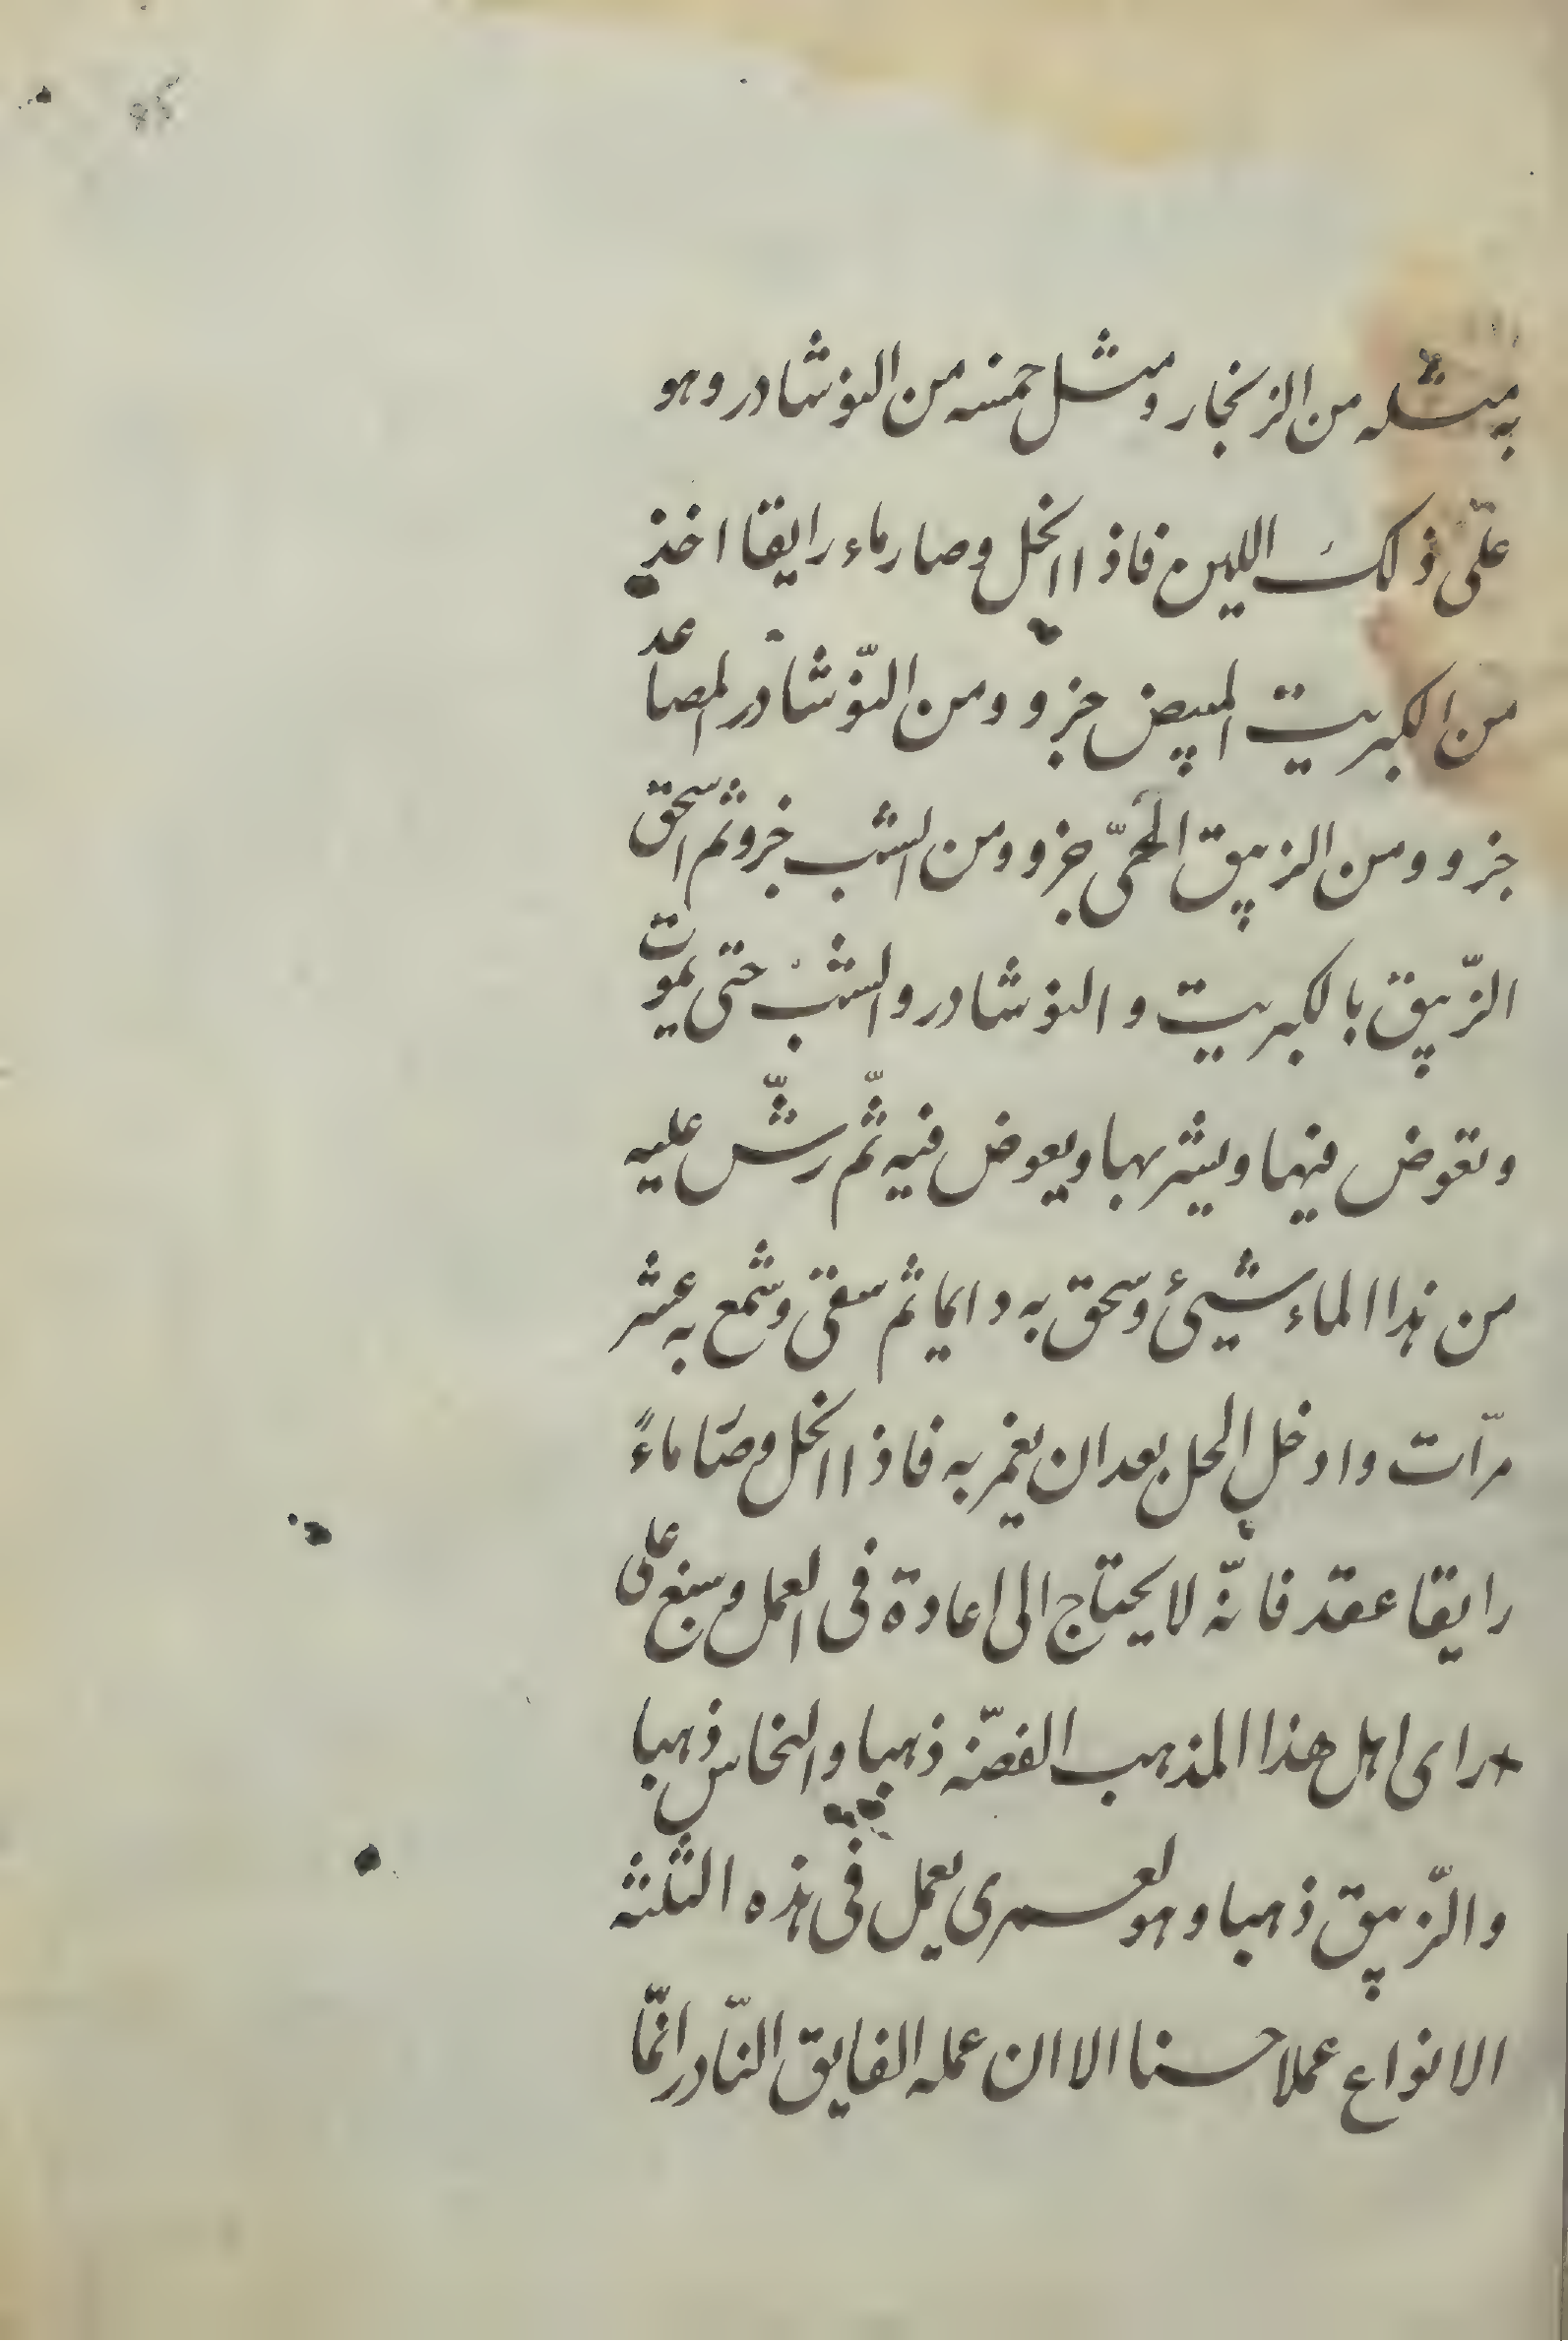 به مثله من الزنجار ومثل خمسه من النوشادر وهو
على ذلك اللين فاذا انحل وصار ماء رايقا اخذ
من الكبريت المبيض جزو ومن النّوشادر المصاعد
جزو ومن الزيبق المحىّ جزو ومن الشب جزو ثم اسحق
الزّيبق بالكبريت والنوشادر والشب حتى يموت
وتغوض فيها ويشربها ويغوض فيه ثمّ رشّ عليه
من هذا الماء شيئ وسحق به دايما ثم سقى وشمع به عشر
مرّات وادخل الحل بعد ان يغمر به فاذا انحل وصا ماءً
رايقا عقد فانّه لا يحتاج الى اعادة فى العمل وسبغ على
راى اهل هذا المذهب الفضّه ذهبا والنحاس ذهبا
والزّيبق ذهبا وهو لعمرى يعمل فى هذه الثلثه
الانواع عملا حسنا الا ان عمله الفايق النّادر انّما